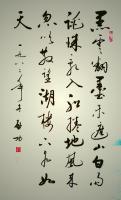 黑雲翻墨未遮山白雨
跳珠亂入船捲地風來
忽吹散望湖樓下水如
天 一九八 年 啟功